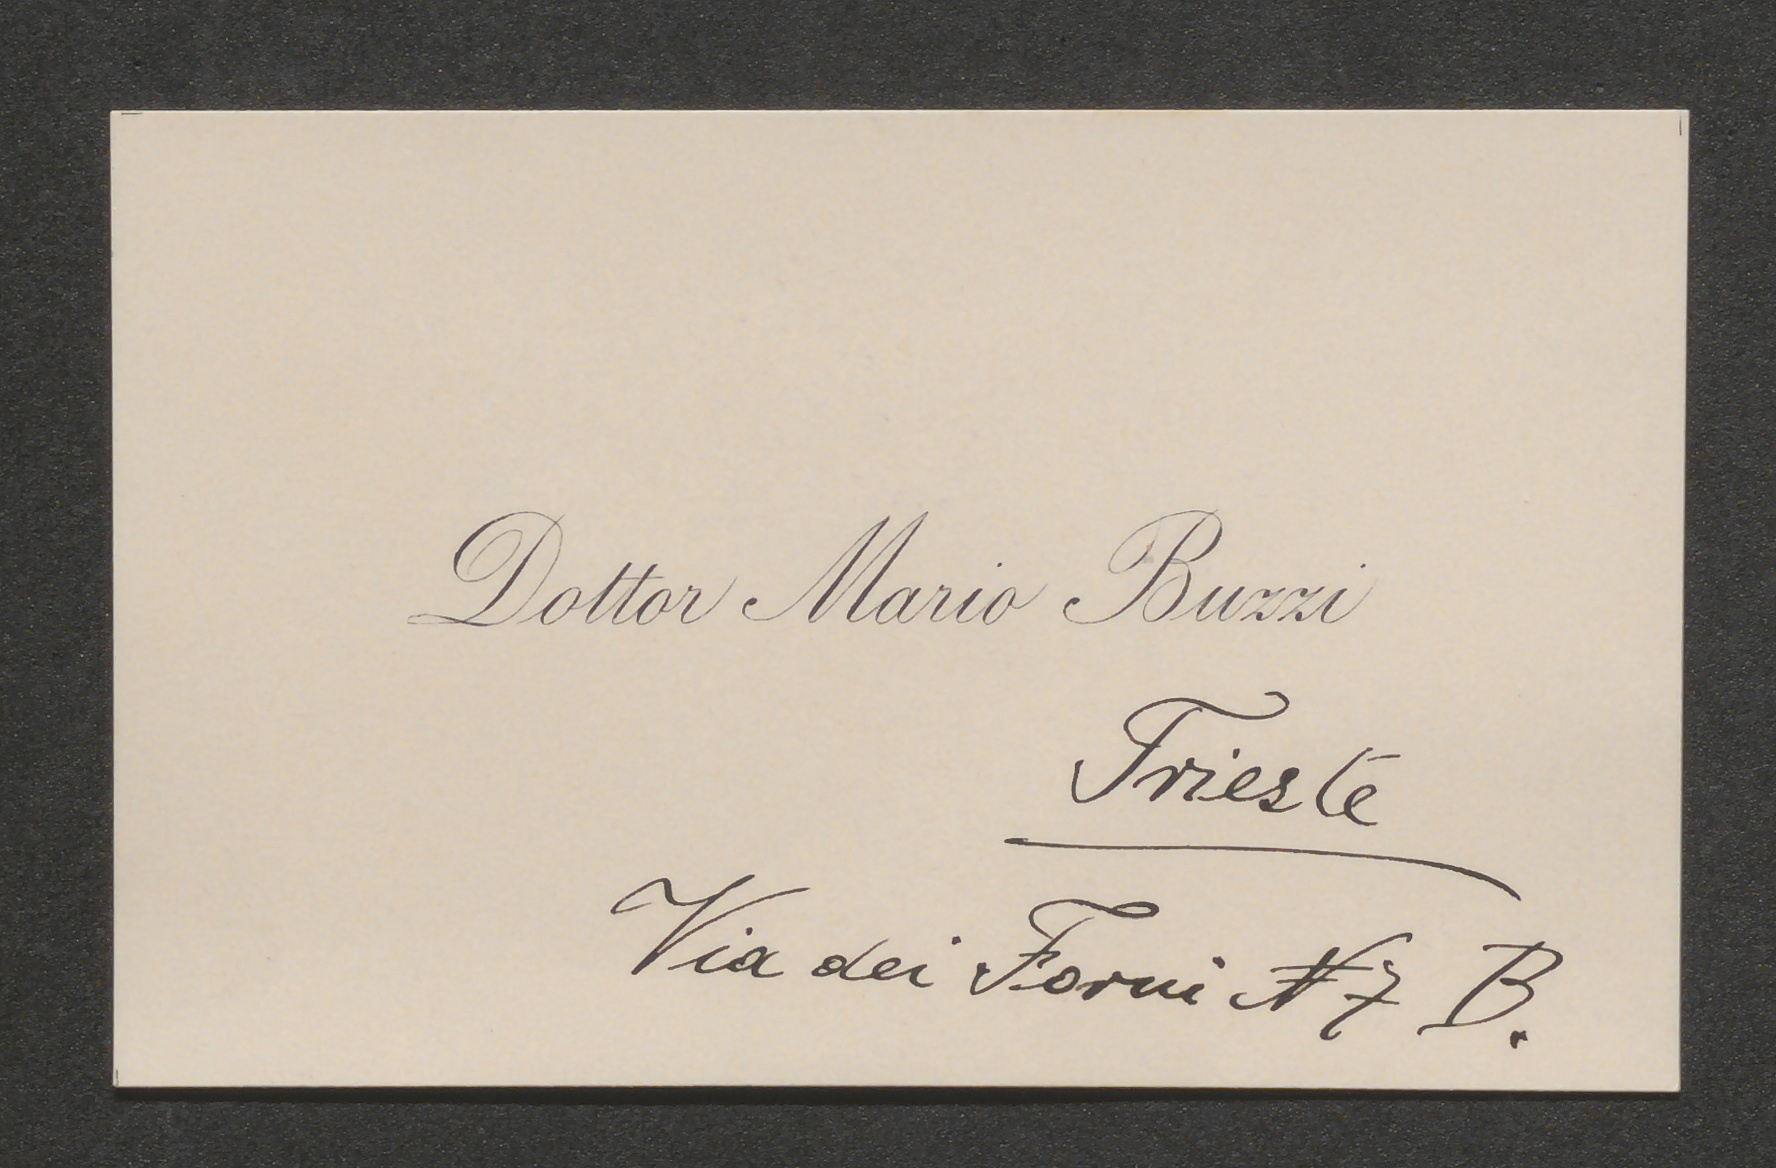 Dottor Mario Buzzi
Trieste
Via dei Forni N 7 B.